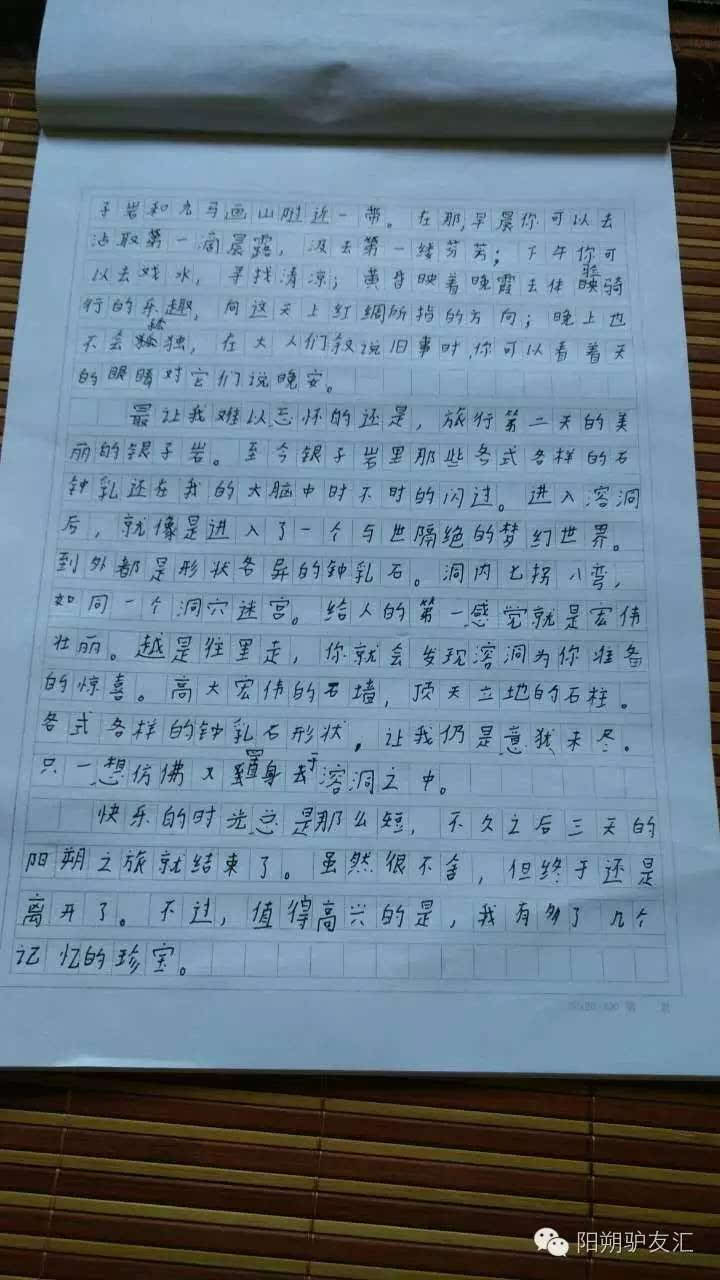 子岩和九马画山附近一带。在那,早晨你可以去
沾取第一滴晨露，汲去第一缕芬芳；下午你可
以去戏水，寻找清凉；黄昏映着晚霞去体验骑
行的乐趣，向这天上红绸所指的方向；晚上也
不会孤独，在大人们叙说旧事时,你可以看着天
的眼睛对它们说晚安。
最让我难以忘怀的还是，旅行第二天的美
丽的银子岩。至今银子岩里那些各式各样的石
钟乳还在我的大脑中时不时的闪过。进入溶洞
后，就像是进入了一个与世隔绝的梦幻世界。
到外都是形状各异的钟乳石。洞内七拐八弯，
如同一个洞穴迷宫。给人的第一感觉就是宏伟
壮丽。越是往里走，你就会发现溶洞为你准备
的惊喜。高大宏伟的石墙，顶天立地的石柱。
各式各样的钟乳石形状，让我仍是意犹未尽。
只一想仿佛又置身于溶洞之中。
快乐的时光总是那么短，不久之后三天的
阳朔之旅就结束了。虽然很不舍，但终于还是
离开了。不过，值得高兴的是，我有多了几个
记忆的珍宝。
阳朔驴友汇